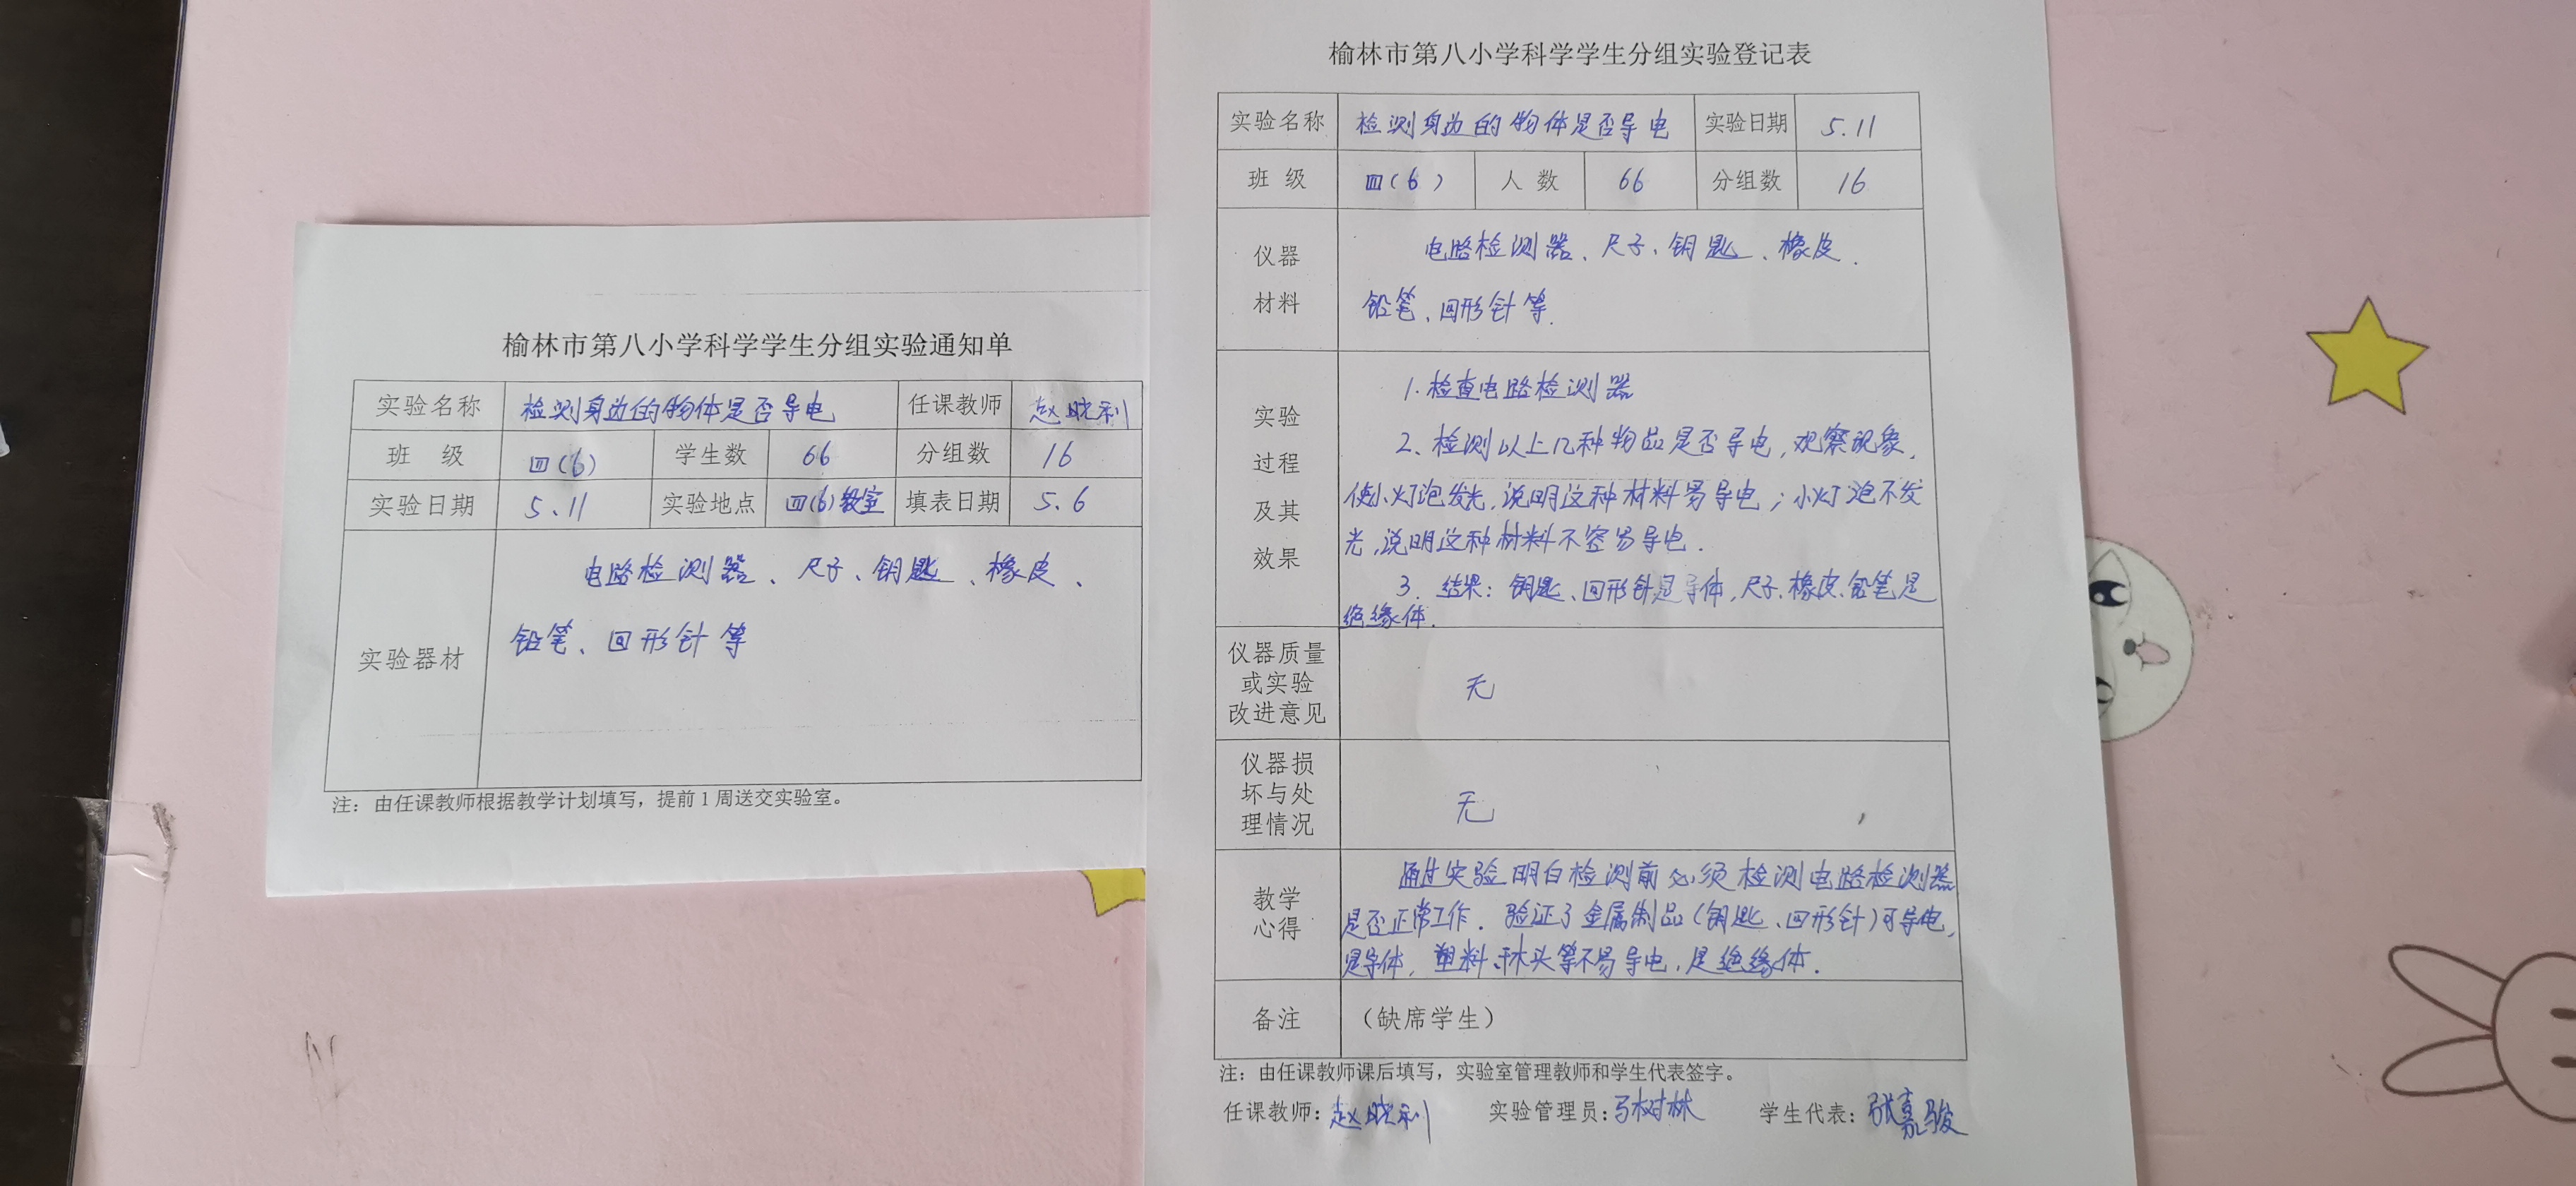 榆林市第八小学科学学生分组实验通知单
实验名称 检测身边的物体是否导电 任课教师 赵晓利
班 级 四(6) 学生数 66 分组数 16
实验日期 5.11 实验地点 四(6)教室 填表日期 5.6
实验器材
电路检测器、尺子、钥匙、橡皮、
铅笔、回形针等
注：由任课教师根据教学计划填写，提前1周送交实验室。
榆林市第八小学科学学生分组实验登记表
实验名称 检测身边的物体是否导电 实验日期 5.11
班 级 四(6) 人 数 66 分组数 16
仪器
材料
电路检测器、尺子、钥匙、橡皮.
铅笔、回形针等.
实验
过程
及其
效果
1.检查电路检测器
2、检测以上几种物品是否导电,观察现象,
使小灯泡发光,说明这种材料易导电;小灯泡不发
光,说明这种材料不容易导电.
3. 结果:钥匙、回形针是导体,尺子、橡皮、铅笔是
绝缘体.
仪器质量
或实验
改进意见
无
仪器损
坏与处
理情况
无
教学
心得
通过实验明白检测前必须检测电路检测器
是否正常工作.验证了金属制品(钥匙、回形针)可导电,
是导体,塑料、木头等不易导电,是绝缘体.
备注 （缺席学生）
注：由任课教师课后填写，实验室管理教师和学生代表签字。
任课教师：赵晓利 实验管理员：马树林 学生代表：张嘉骏